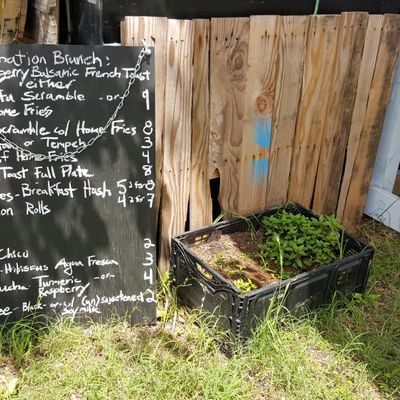 nation Brunch:
berry Balsamic French Toast
either
fu Scramble -or- 9
ome Fries
Scramble w/ Home Fries 8
or Tempeh 3
f Home Fries 4
Tast Full Plate 8
es-Breakfast Hash 5 2 for 8
on Rolls 4 2 for 7
Chico 2
Hibiscus Agua Fresca 3
ucha Turmeric -or- 4
Raspberry
ee Black -or- w/ (un)sweetened 2
soymilk